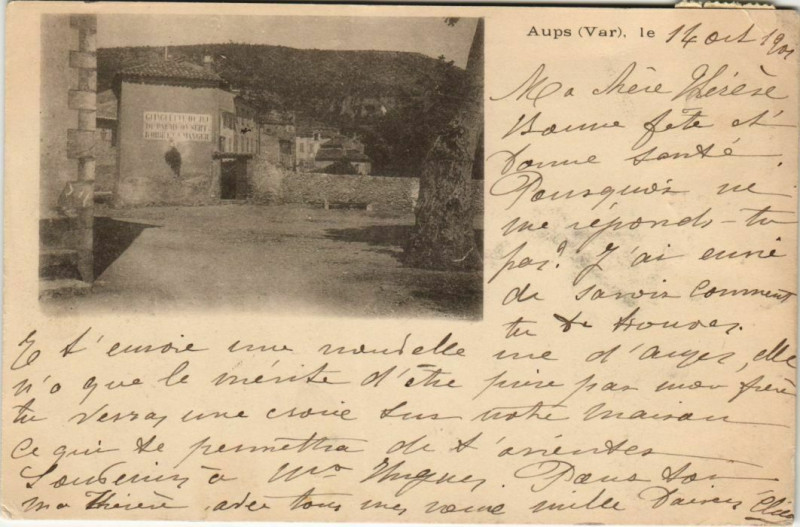 Aups (Var), le 14 oct 190
Ma chère Thérèse
Bonne fête et
bonne santé.
Pourquoi ne
me réponds-tu
pas? J'ai envie
de savoir comment
tu te trouves.
Je t'envoie une nouvelle vue d'Aups, elle
n'a que le mérite d'être prise par mon frère
tu verras une croix sur notre maison
ce qui te permettra de t'orienter
Souvenirs à Hugues. Pour toi
ma Thérèse, avec tous mes vœux mille baisers